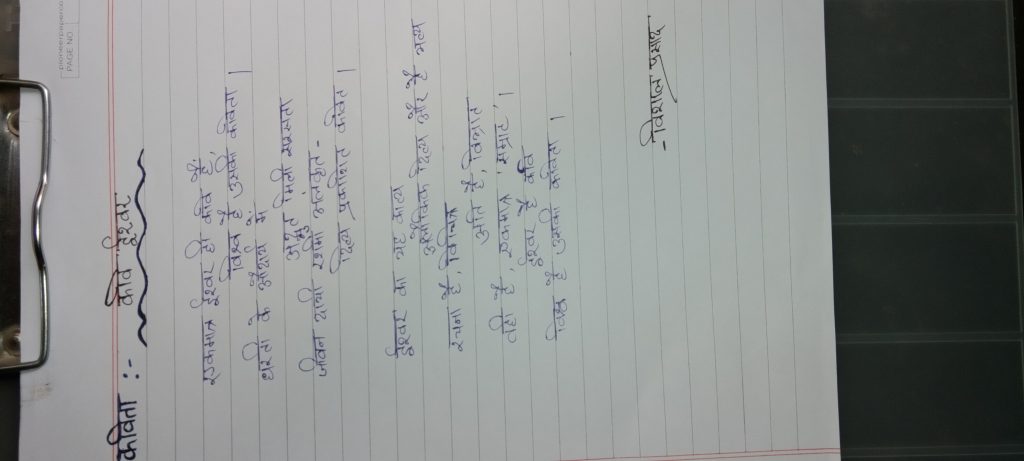 pioneerpaper.co
PAGE NO.
कविता :- कवि ईश्वर
एकमात्र ईश्वर ही कवि हैं,
विश्व है उसकी कविता ।
धरती के आँचल में
अमृत मिली सरसता
जीवन यात्री रश्मि अलंकृत -
दिव्य प्रकाशित कविता ।
ईश्वर का यह काव्य
अलौकिक दिव्य और है भव्य
रचना है, विचित्र
अति है, विशाल
वही है, एकमात्र 'सम्राट' ।
ईश्वर है कवि
विश्व है उसकी कविता ।
- विशाल प्रसाद